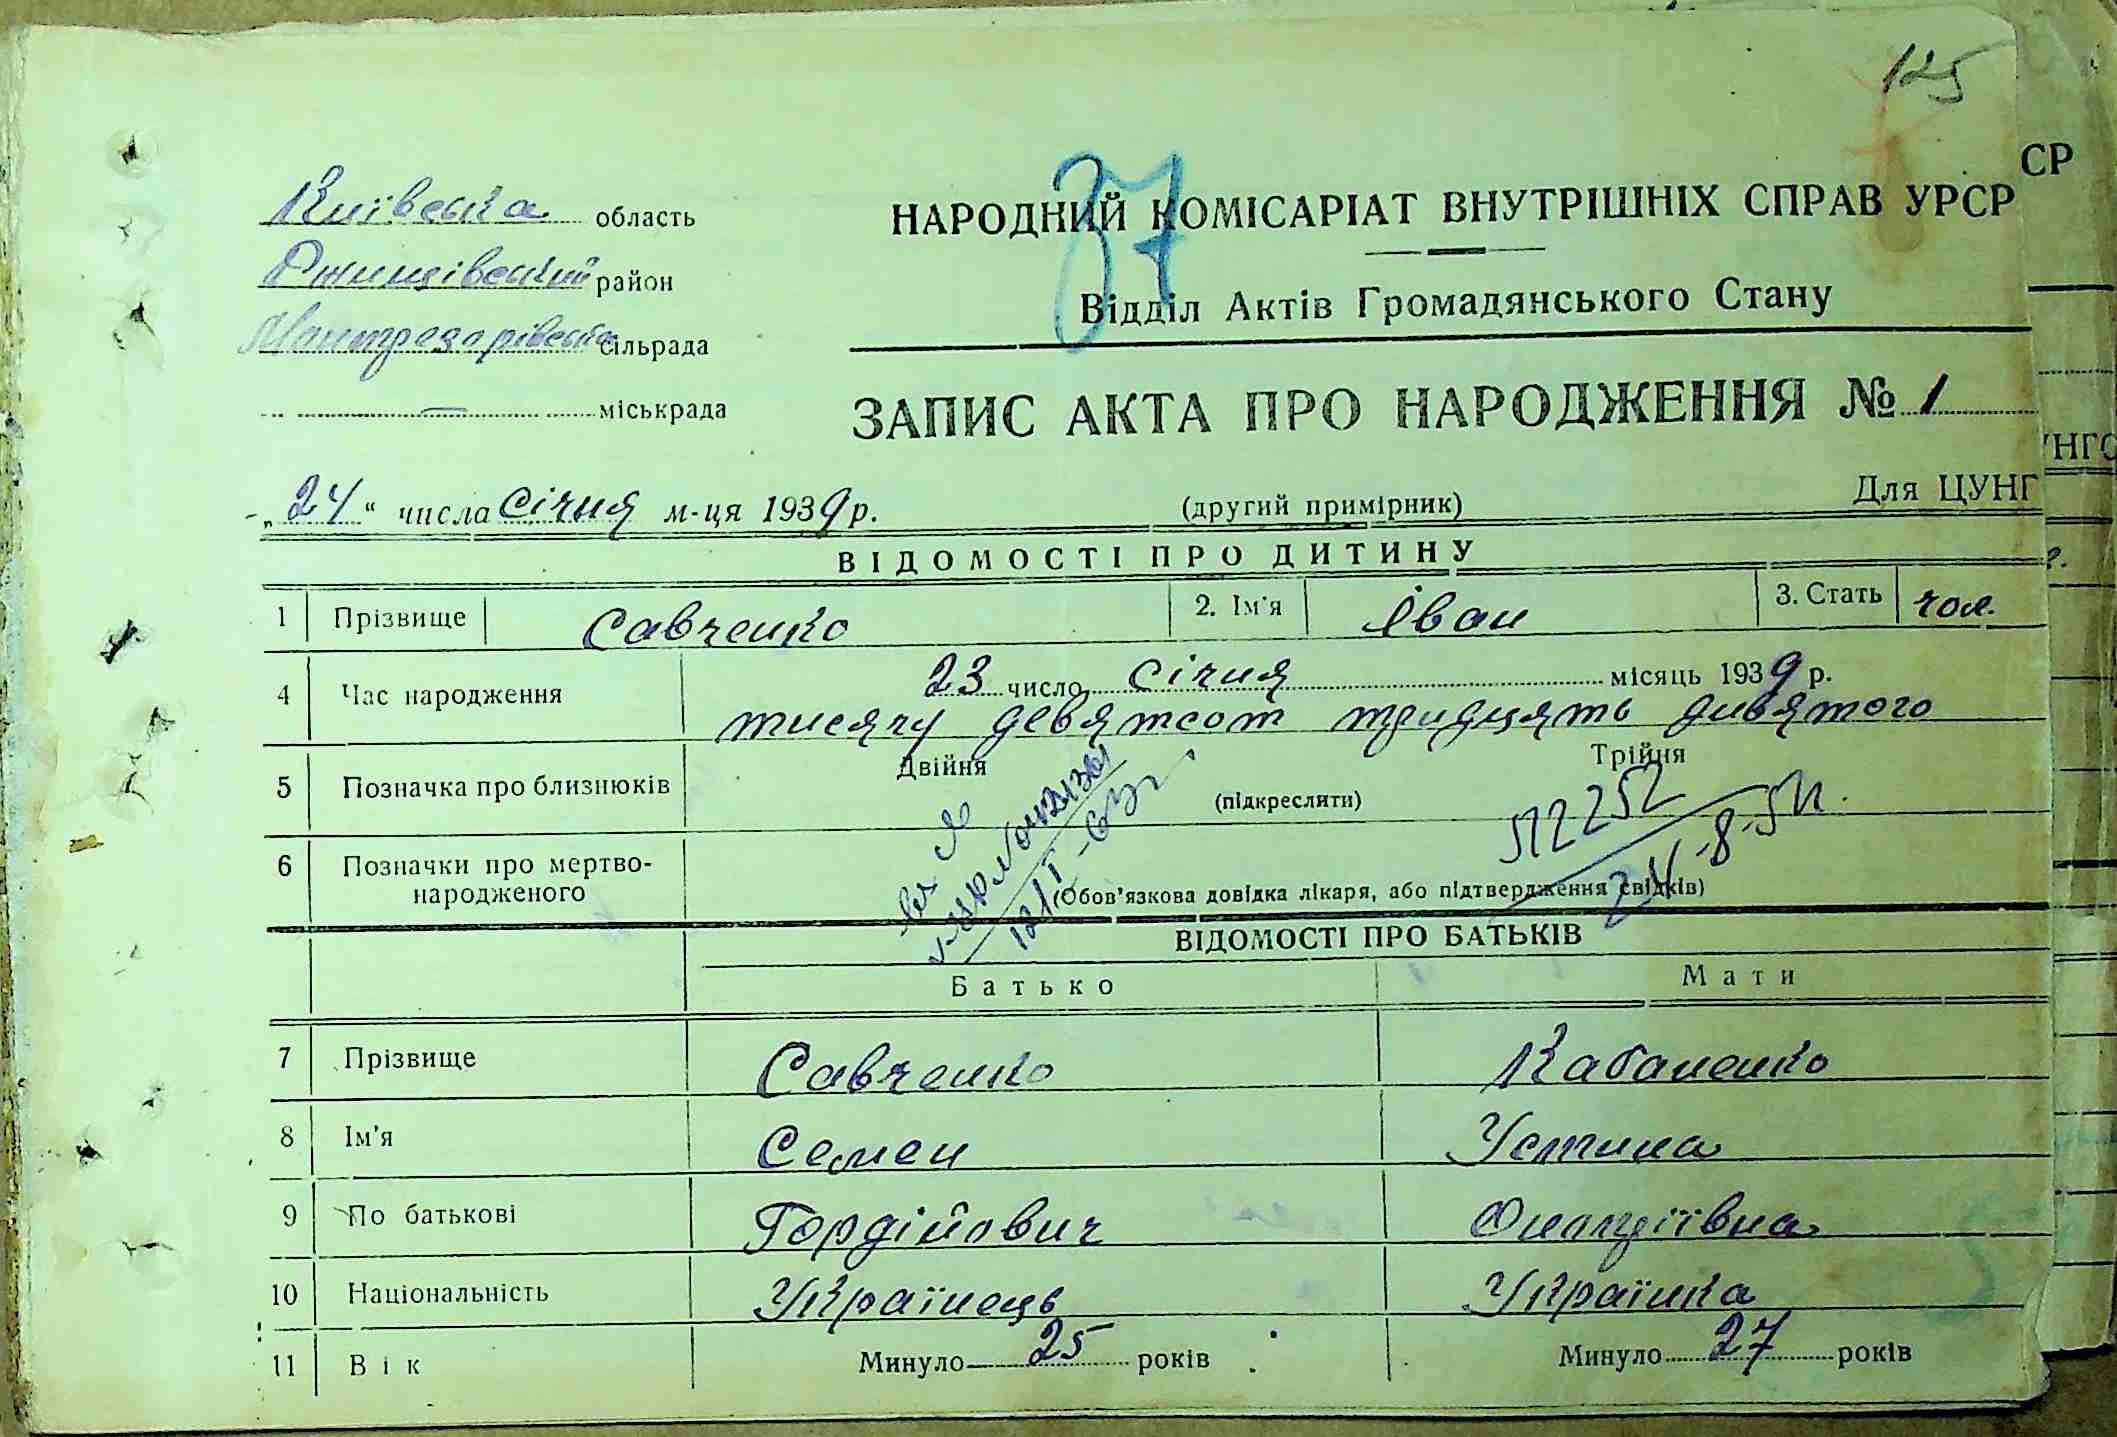 125
СР
37
Київська область
НАРОДНИЙ КОМІСАРІАТ ВНУТРІШНІХ СПРАВ УРСР
Ржищівський район
Відділ Актів Громадянського Стану
сільрада
— міськрада
ЗАПИС АКТА ПРО НАРОДЖЕННЯ № 1
„24“ числа січня м-ця 1939 р.
(другий примірник)
Для ЦУНГ
ВІДОМОСТІ ПРО ДИТИНУ
1 Прізвище Савченко 2. Ім'я Іван 3. Стать чол.
4 Час народження 23 число січня місяць 1939 р.
тисячу девятсот тридцять дивятого
5 Позначка про близнюків Двійня (підкреслити) Трійня
512252
24.8.51
6 Позначки про мертво-
народженого
(Обов'язкова довідка лікаря, або підтвердження свідків)
ВІДОМОСТІ ПРО БАТЬКІВ
Батько Мати
7 Прізвище Савченко Кабаненко
8 Ім'я Семен Устина
9 По батькові Гордійович
10 Національність Українець Українка
11 Вік Минуло 25 років Минуло 27 років